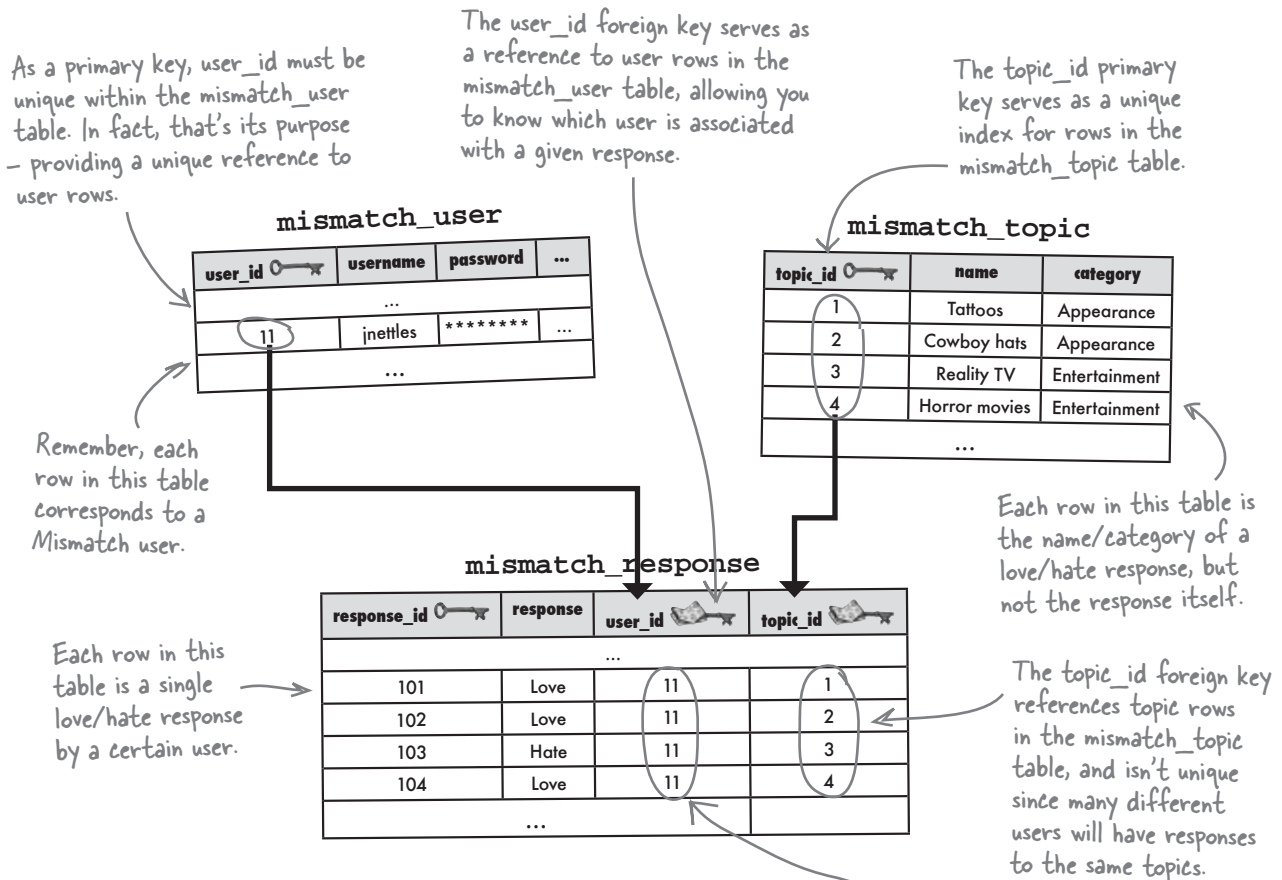 As a primary key, user_id must be
unique within the mismatch_user
table. In fact, that's its purpose
– providing a unique reference to
user rows.
The user_id foreign key serves as
a reference to user rows in the
mismatch_user table, allowing you
to know which user is associated
with a given response.
The topic_id primary
key serves as a unique
index for rows in the
mismatch_topic table.
mismatch_user
user_id username password ...
...
11 jnettles ******** ...
...
mismatch_topic
topic_id name category
1 Tattoos Appearance
2 Cowboy hats Appearance
3 Reality TV Entertainment
4 Horror movies Entertainment
...
Remember, each
row in this table
corresponds to a
Mismatch user.
Each row in this table is
the name/category of a
love/hate response, but
not the response itself.
mismatch_response
response_id response user_id topic_id
...
101 Love 11 1
102 Love 11 2
103 Hate 11 3
104 Love 11 4
...
Each row in this
table is a single
love/hate response
by a certain user.
The topic_id foreign key
references topic rows
in the mismatch_topic
table, and isn't unique
since many different
users will have responses
to the same topics.